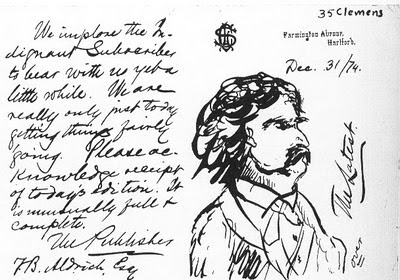 35 Clemens
Farmington Avenue,
Hartford.
Dec. 31/74.
We implore the In-
dignant Subscriber
to bear with us yet a
little while. We are
really only just today
getting things fairly
going. Please ac-
knowledge receipt
of today's edition. It
is unusually full &
complete.
The Publisher
T.B. Aldrich, Esq
The Latest.
Over